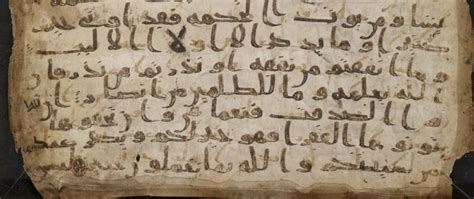 يشا ومن يوت الحكمه فقد اوتي خير
كثيرا وما يذكر الا اولوا الالبب
وما انفقتم من نفقه او نذرتم من نذر فان
الله يعلمه وما للظلمين من انصار ان
وا الصدقت فنعما هي وان تخفوها
وتوتوها الفقرا فهو خير لكم ويكفر عنكم
من سيتكم والله بما تعملون خبير ليس